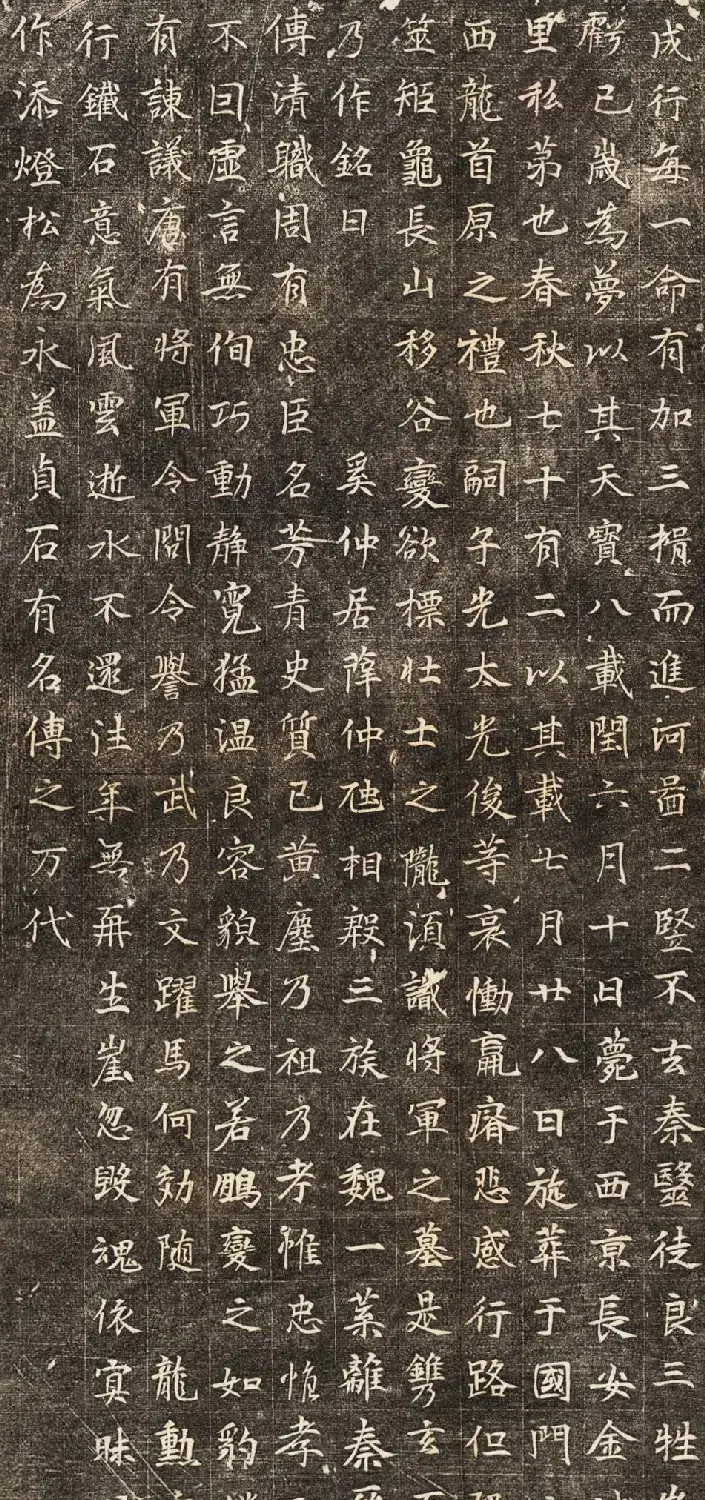 成行每一命有加三揖而進河啚二竪不去秦毉徒良三牲
虧已歲為夢以其天寶八載閏六月十日薨于西京長安金
里私苐也春秋七十有二以其載七月廿八日旋葬于國門
西龍首原之禮也嗣子光太光俊等哀慟羸瘠悲感行路但
筮矩龜長山移谷變欲標壯士之隴湏識將軍之墓是鐫玄
乃作銘曰 奚仲居薛仲虺相殷三族在魏一葉離秦
傳清職周有忠臣名芳青史質已黄塵乃祖乃考惟忠惟孝
不曰虛言無侚巧動静寬猛温良容貌舉之若鵬變之如豹
有諫議唐有將軍令問令譽乃武乃文躍馬何効随 龍勳
行鐵石意氣風雲逝水不還往年無再生崖忽毀魂依寘昧
作添燈松為永盖貞石有名傳之万代